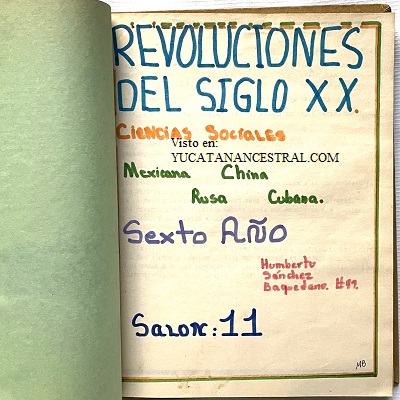 REVOLUCIONES
DEL SIGLO XX.
CIENCIAS SOCIALES
Visto en:
YUCATANANCESTRAL.COM
Mexicana China
Rusa Cubana.
Sexto AÑO
Humberto
Sánchez
Baquedano. #
Salon: 11
MB